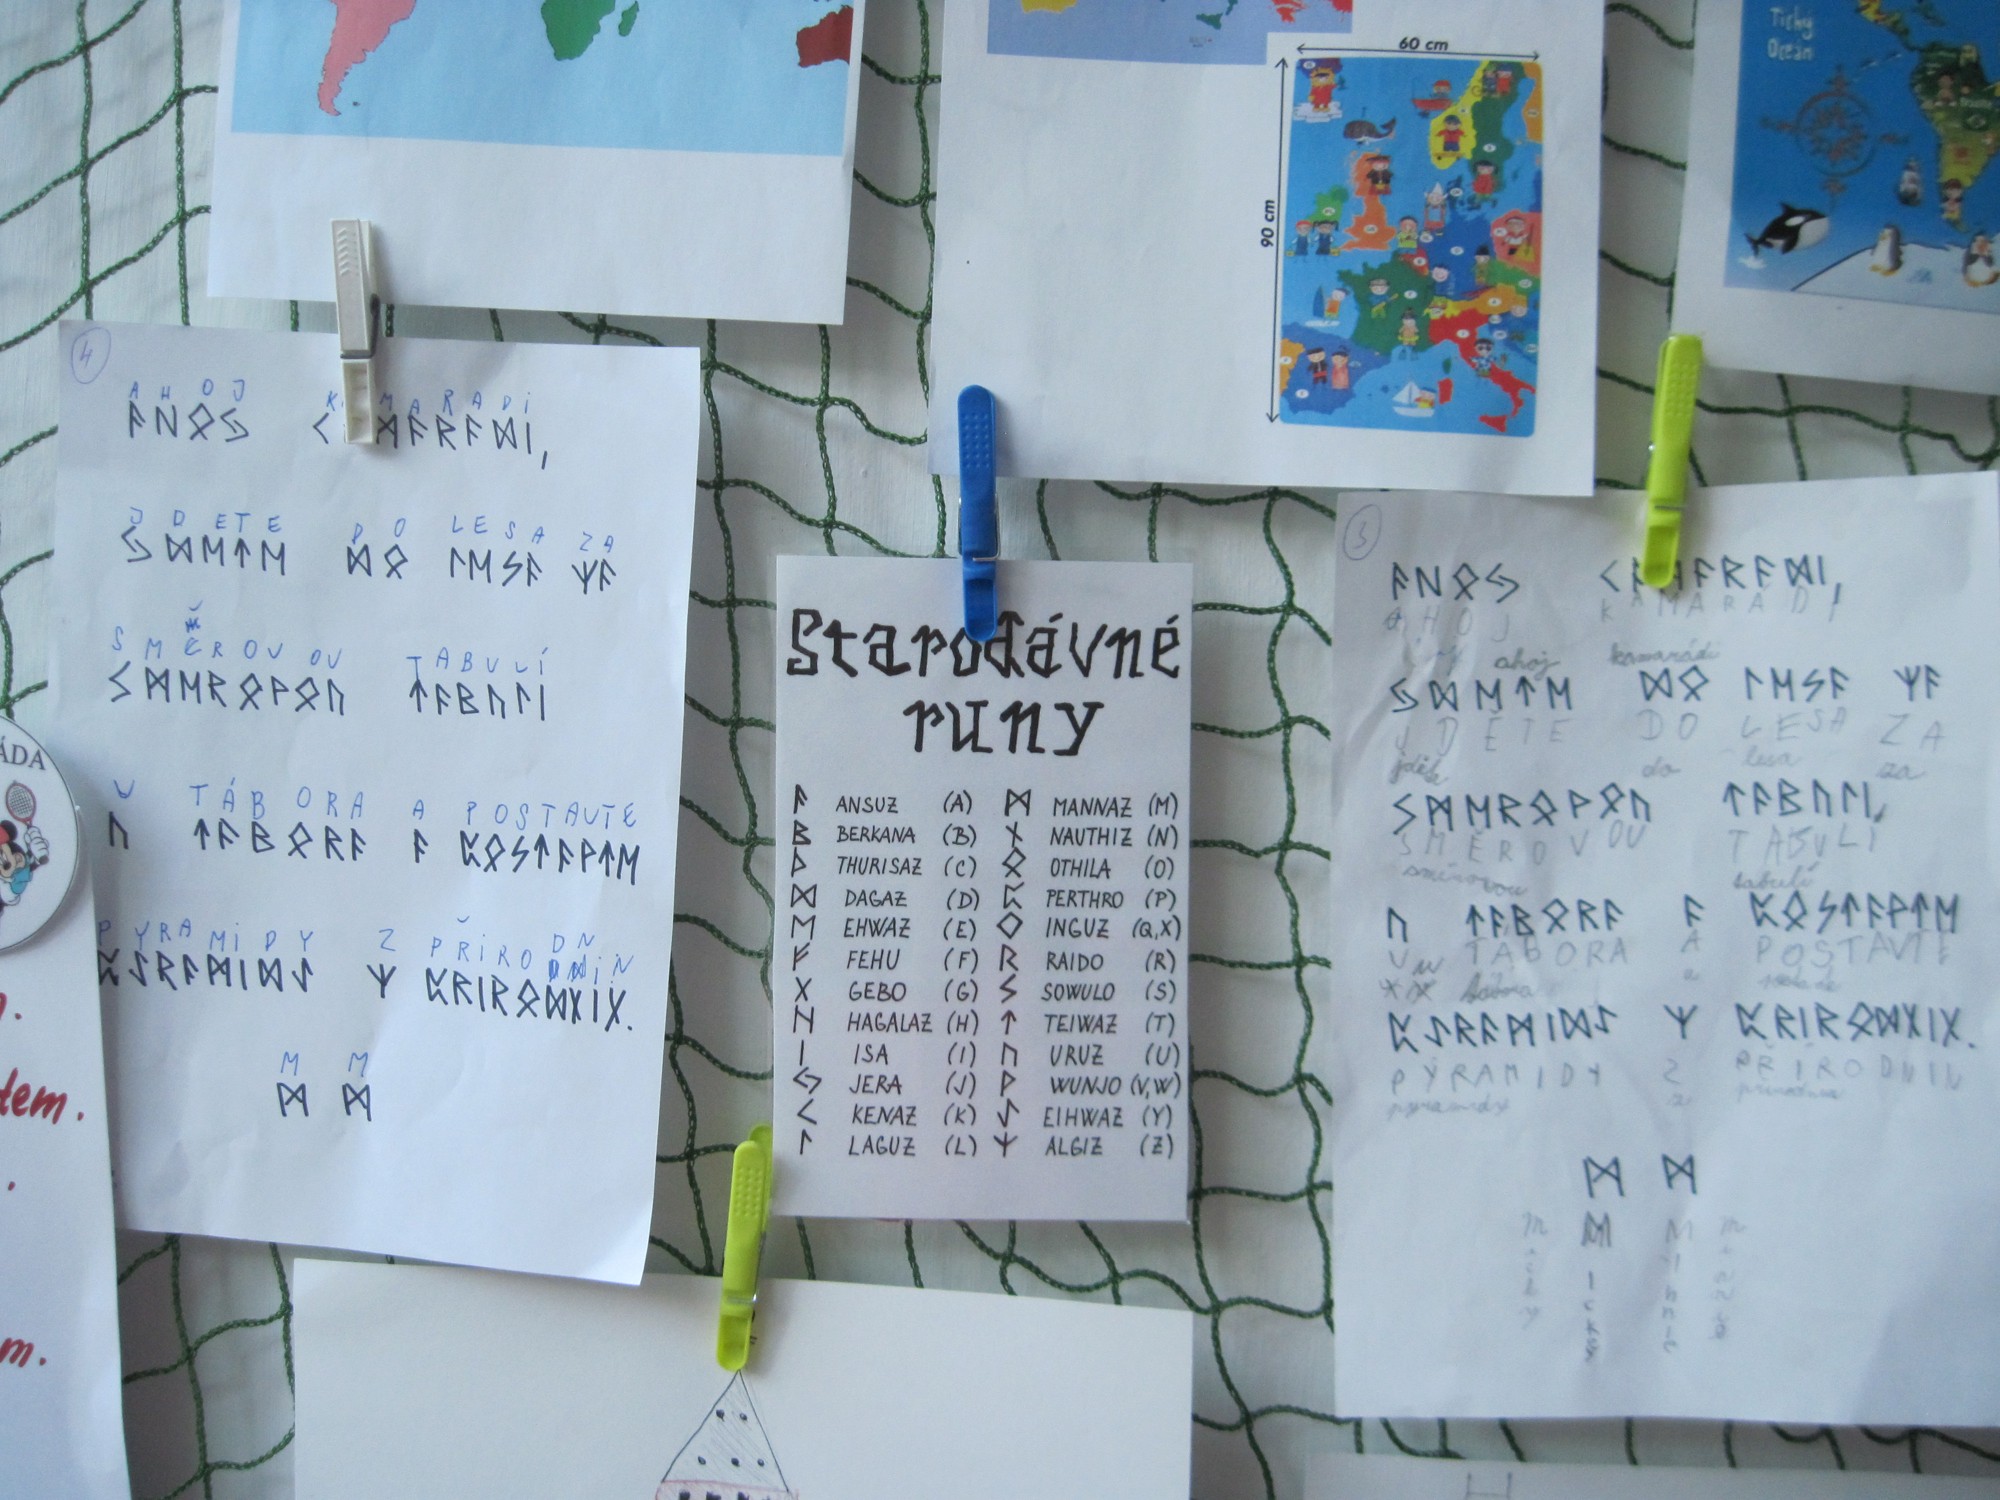 60 cm
90 cm
Tichý
Oceán
4
A H O J K M A R A D I
ᚨᚺᛟᛃ ᚲ ᛗᚨᚱᚨᛞᛁ,
J D E T E D O L E S A Z A
ᛃᛞᛖᛏᛖ ᛞᛟ ᛚᛖᛊᚨ ᛉᚨ
S M Ě R O V O U T A B U L Í
ᛊᛗᛖᚱᛟᚹᛟᚢ ᛏᚨᛒᚢᛚᛁ
U T Á B O R A A P O S T A V T E
ᚢ ᛏᚨᛒᛟᚱᚨ ᚨ ᛈᛟᛊᛏᚨᚹᛏᛖ
P Y R A M I D Y Z P Ř I R O D N I N
ᛈᛇᚱᚨᛗᛁᛞᛇ ᛉ ᛈᚱᛁᚱᛟᛞᚾᛁᚾ.
M M
ᛗ ᛗ
Starodávné
runy
ᚨ ANSUZ (A) ᛗ MANNAZ (M)
ᛒ BERKANA (B) ᚾ NAUTHIZ (N)
ᚦ THURISAZ (C) ᛟ OTHILA (O)
ᛞ DAGAZ (D) ᛈ PERTHRO (P)
ᛖ EHWAZ (E) ᛜ INGUZ (Q,X)
ᚠ FEHU (F) ᚱ RAIDO (R)
ᚷ GEBO (G) ᛊ SOWULO (S)
ᚺ HAGALAZ (H) ᛏ TEIWAZ (T)
ᛁ ISA (I) ᚢ URUZ (U)
ᛃ JERA (J) ᚹ WUNJO (V,W)
ᚲ KENAZ (K) ᛇ EIHWAZ (Y)
ᛚ LAGUZ (L) ᛉ ALGIZ (Z)
3
ᚨᚺᛟᛃ ᚲᚨᛗᚨᚱᚨᛞᛁ,
A H O J K A M A R Á D I
ahoj kamarádi
ᛃᛞᛖᛏᛖ ᛞᛟ ᛚᛖᛊᚨ ᛉᚨ
J D Ě T E D O L E S A Z A
jděte do lesa za
ᛊᛗᛖᚱᛟᚹᛟᚢ ᛏᚨᛒᚢᛚᛁ,
S M Ě R O V O U T A B U L Í
tabulí
ᚢ ᛏᚨᛒᛟᚱᚨ ᚨ ᛈᛟᛊᛏᚨᚹᛏᛖ
U T Á B O R A A P O S T A V T E
tábora a
ᛈᛇᚱᚨᛗᛁᛞᛇ ᛉ ᛈᚱᛁᚱᛟᛞᚾᛁᚾ.
P Y R A M I D Y Z P Ř Í R O D N I N
z
ᛗ ᛗ
ÁDA
dem.
m.